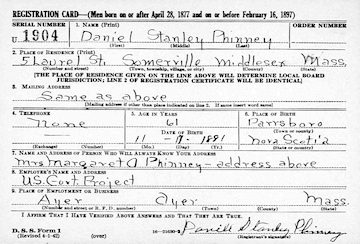 REGISTRATION CARD—(Men born on or after April 28, 1877 and on or before February 16, 1897)
SERIAL NUMBER 1. NAME (Print) ORDER NUMBER
U 1904 Daniel Stanley Phinney
(First) (Middle) (Last)
2. PLACE OF RESIDENCE (Print)
5 Laurel St. Somerville Middlesex Mass.
(Number and street) (Town, township, village, or city) (County) (State)
[THE PLACE OF RESIDENCE GIVEN ON THE LINE ABOVE WILL DETERMINE LOCAL BOARD
JURISDICTION; LINE 2 OF REGISTRATION CERTIFICATE WILL BE IDENTICAL]
3. MAILING ADDRESS
Same as above
[Mailing address if other than place indicated on line 2. If same insert word same]
4. TELEPHONE 5. AGE IN YEARS 6. PLACE OF BIRTH
None 61 Parrsboro
DATE OF BIRTH (Town or county)
11 - 9 - 1881 Nova Scotia
(Exchange) (Number) (Mo.) (Day) (Yr.) (State or country)
7. NAME AND ADDRESS OF PERSON WHO WILL ALWAYS KNOW YOUR ADDRESS
Mrs Margaret A Phinney - address above
8. EMPLOYER'S NAME AND ADDRESS
U.S. Govt. Project
9. PLACE OF EMPLOYMENT OR BUSINESS
Ayer Ayer Mass.
(Number and street or R. F. D. number) (Town) (County) (State)
I AFFIRM THAT I HAVE VERIFIED ABOVE ANSWERS AND THAT THEY ARE TRUE.
D. S. S. Form 1
(Revised 4-1-42) (over) Daniel Stanley Phinney
(Registrant's signature)